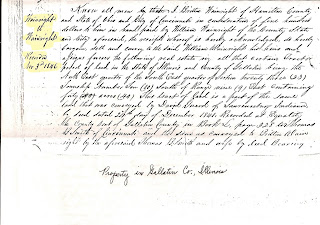 Wainwright
Wainwright
Know all men by these I Wistar Wainwright of Hamilton County
and State of Ohio and City of Cincinnati in consideration of four hundred
dollars to him in hand paid by William Wainwright of the County State
and City aforesaid, the receipt whereof is hereby acknowledged, do hereby
bargain, sell and convey to the said William Wainwright his heirs and
assigns forever the following real estate viz all that certain tract or
parcel of land in the State of Illinois and County of Gallatin being the
North East quarter of the South East quarter of Section twenty three (23)
Township Number ten (10) South of Range nine (9) East containing
forty (40) acres This tract of land is a part of the same
land that was conveyed by
by deed dated 21st day of December 1840 Recorded at Equality
in County seat of Gallatin County in Book page 325 to Thomas
D. Smith of Cincinnati and the same as conveyed to Wistar Wain
wright by the aforesaid Thomas D Smith and wife by deed bearing
Property in Gallatin Co, Illinois